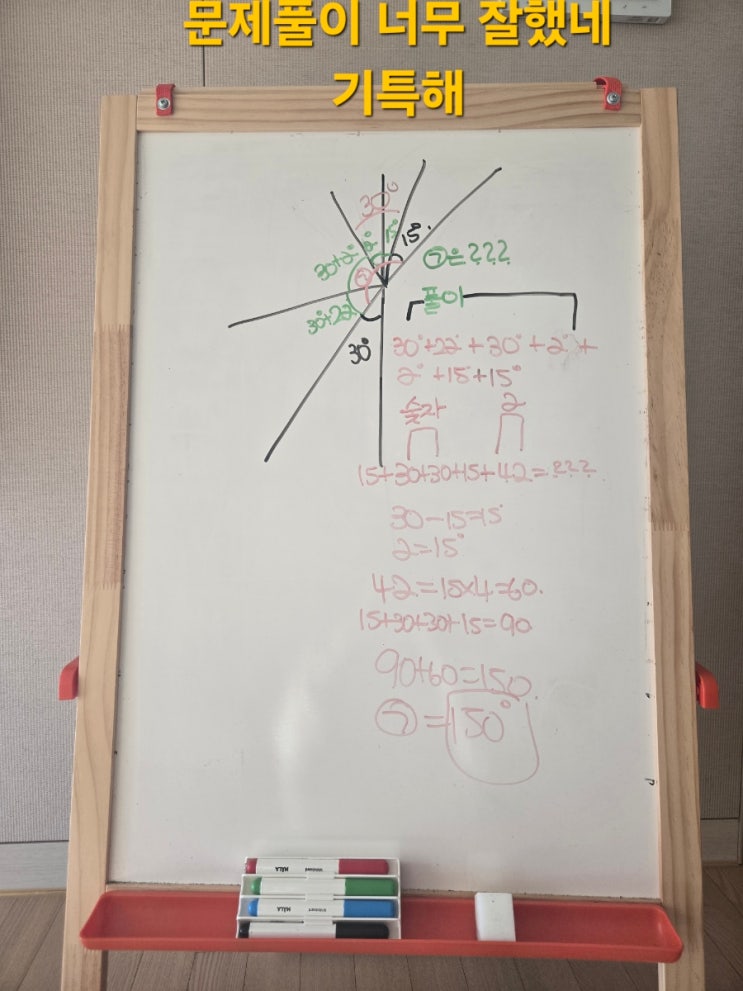 문제풀이 너무 잘했네
기특해
30°
30+2° 2° 15° 15°
㉠은???
30+22
30°
풀이
30°+22°+30°+2°+
2°+15+15°
숫자 2
15+30+30+15+42=???
30-15=15
2=15°
42=15×4=60.
15+30+30+15=90
90+60=150
㉠=150°